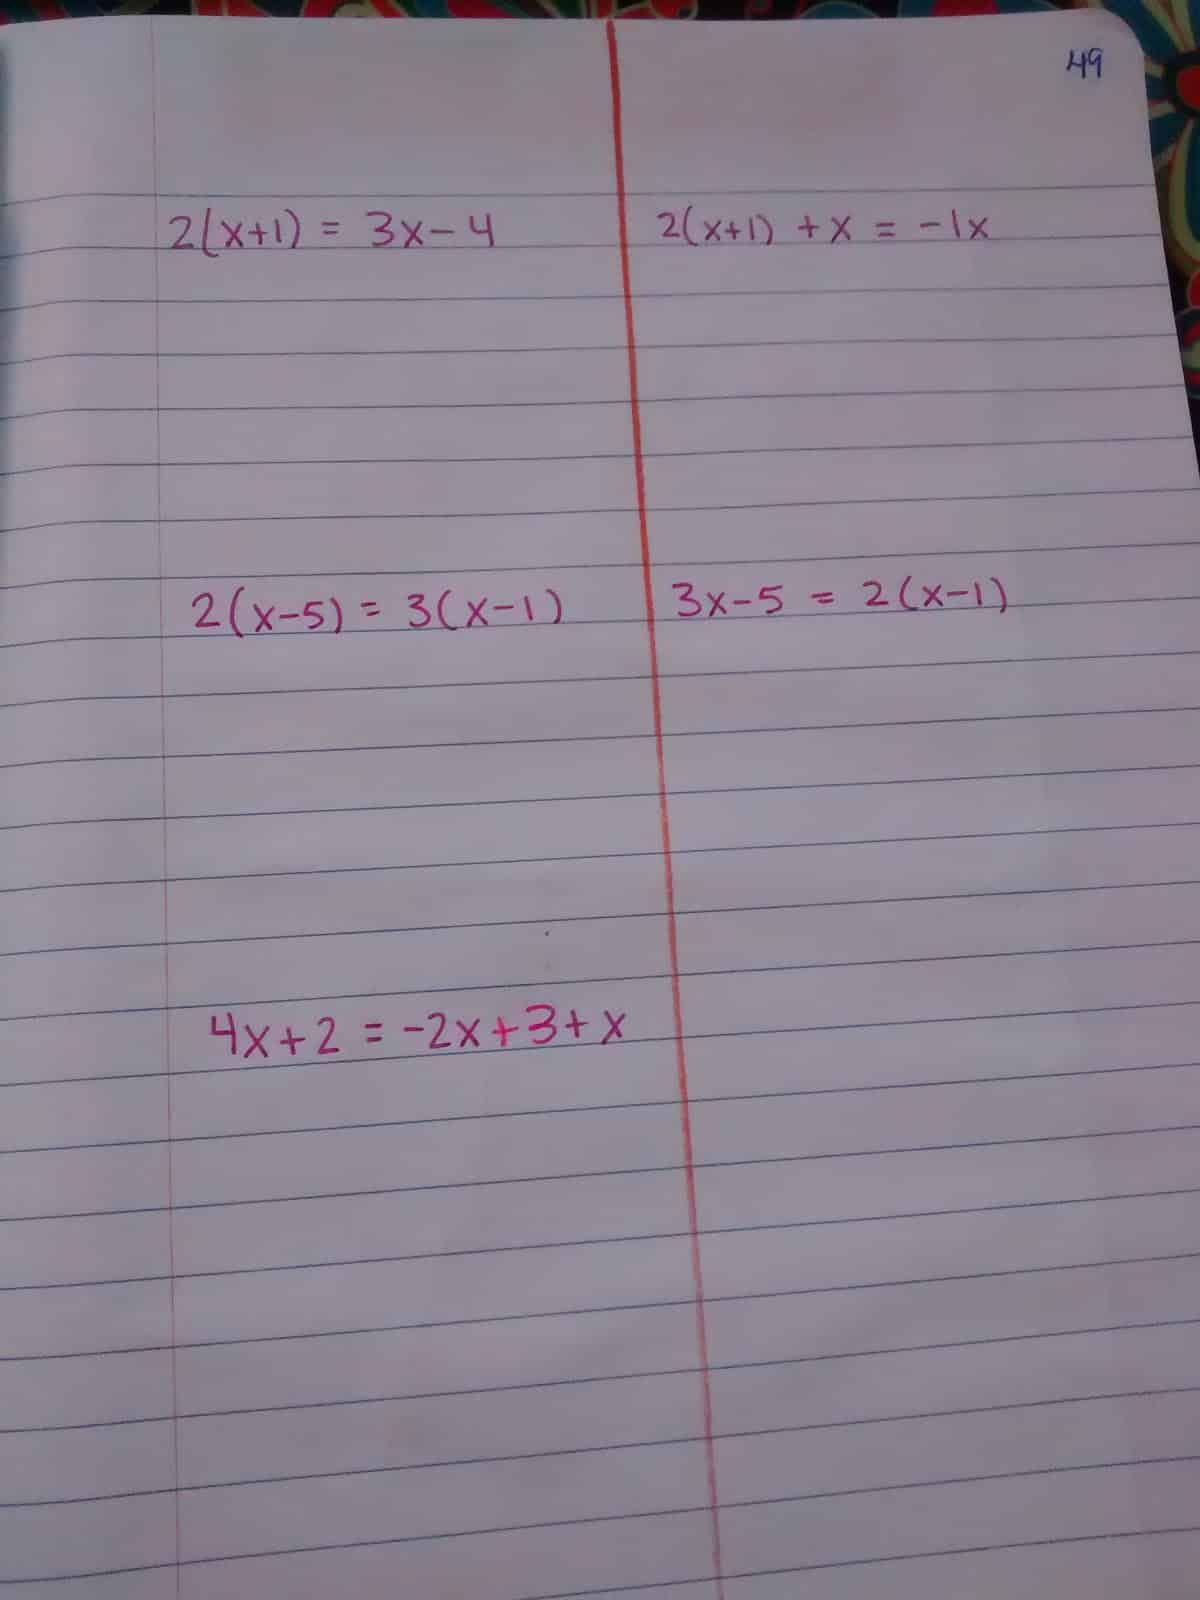 49
2(x+1) = 3x-4
2(x+1) +x = -1x
2(x-5) = 3(x-1)
3x-5 = 2(x-1)
4x+2 = -2x+3+x